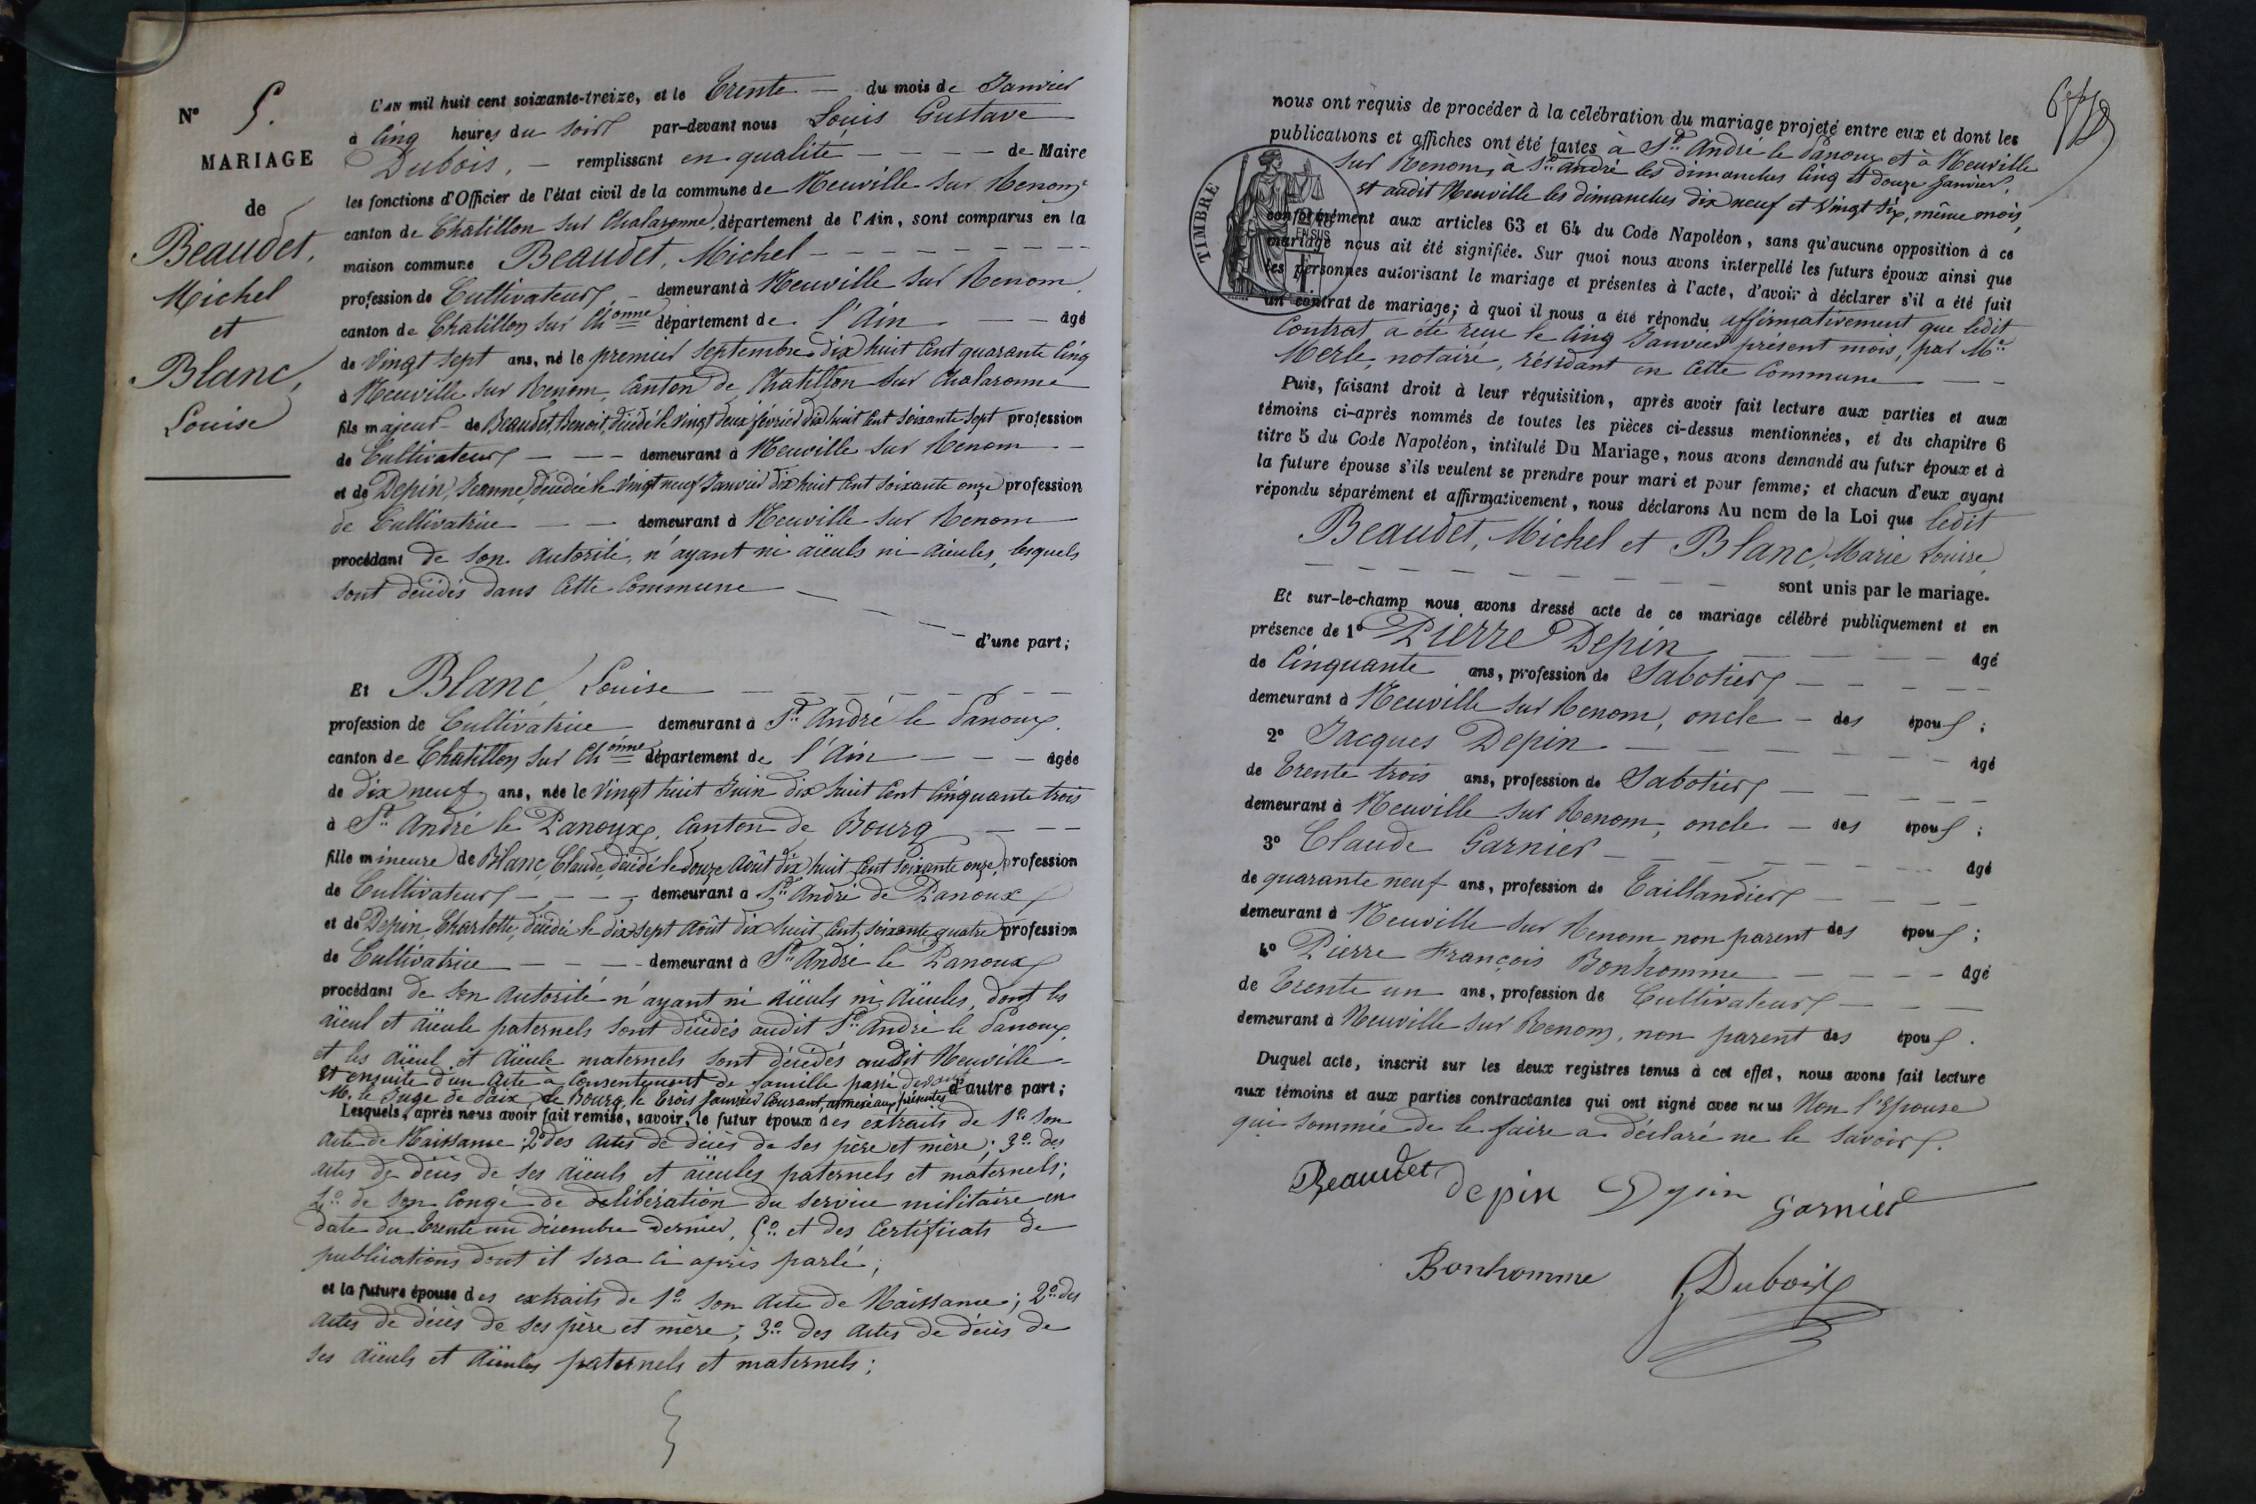 N° 5.
MARIAGE
de
Beaudet,
Michel
et
Blanc,
Louise
L'AN mil huit cent soixante-treize, et le Trente — du mois de Janvier
à Cinq heures du Soir par-devant nous Louis Gustave
Dubois, — remplissant en qualité — — — — de Maire
les fonctions d'Officier de l'état civil de la commune de Neuville sur Renom,
canton de Chatillon sur Chalaronne, département de l'Ain, sont comparus en la
maison commune Beaudet, Michel — — — — — — — —
profession de Cultivateur, — demeurant à Neuville sur Renom,
canton de Chatillon sur Chonne département de l'Ain — — âgé
de Vingt sept ans, né le premier Septembre dix huit Cent quarante Cinq
à Neuville sur Renom, Canton de Chatillon sur Chalaronne
fils majeur — de Beaudet, Benoit, décédé le Vingt deux février dix huit Cent Soixante Sept profession
de Cultivateur — — — demeurant à Neuville sur Renom —
et de Depin, Jeanne, décédée le Vingt neuf Janvier dix huit Cent Soixante onze profession
de Cultivatrice — — — demeurant à Neuville sur Renom
procédant de son autorité, n'ayant ni aïeuls ni aïeules, lesquels
sont décédés dans cette Commune —
— — — — d'une part;
Et Blanc, Louise — — — — — — — —
profession de Cultivatrice demeurant à St. André le Panoux,
canton de Chatillon sur Chonne département de l'Ain — — — âgée
de dix neuf ans, née le Vingt huit Juin dix huit Cent Cinquante trois
à St. André le Panoux, Canton de Bourg — — —
fille mineure de Blanc, Claude, décédé le douze Août dix huit Cent Soixante onze, profession
de Cultivateur — — — demeurant à St. André de Panoux,
et de Depin, Charlotte, décédée le dix sept Août dix huit Cent soixante quatre profession
de Cultivatrice — — — demeurant à St. André le Panoux,
procédant de son autorité n'ayant ni aïeuls ni aïeules, dont les
aïeul et aïeule paternels sont décédés audit St. André le Panoux,
et les aïeul et aïeule maternels sont décédés audit Neuville —
Et ensuite d'un Acte à Consentement de famille passé devant d'autre part;
M. le Juge de Paix, de Bourg, le Trois Janvier Courant, annexé aux présentes
Lesquels, après nous avoir fait remise, savoir, le futur époux des extraits de 1° Son
acte de Naissance; 2° des actes de décès de ses père et mère; 3° des
actes de décès de ses aïeuls et aïeules paternels et maternels;
4° de son Congé de délibération du service militaire en
date du Trente un décembre dernier, 5° et des Certificats de
publications dont il sera ci après parlé;
et la future épouse des extraits de 1° son acte de Naissance; 2° des
actes de décès de ses père et mère; 3° des actes de décès de
ses aïeuls et aïeules paternels et maternels;
nous ont requis de procéder à la célébration du mariage projeté entre eux et dont les
publications et affiches ont été faites à St. André le Panoux et à Neuville
sur Renom, à St. André les dimanches Cinq et douze Janvier,
et audit Neuville les dimanches dix neuf et Vingt Six, même mois,
TIMBRE
EN SUS
conformément aux articles 63 et 64 du Code Napoléon, sans qu'aucune opposition à ce
mariage nous ait été signifiée. Sur quoi nous avons interpellé les futurs époux ainsi que
les personnes autorisant le mariage et présentes à l'acte, d'avoir à déclarer s'il a été fait
un contrat de mariage; à quoi il nous a été répondu affirmativement que ledit
Contrat a été reçu le Cinq Janvier présent mois, par Me
Merle, notaire, résidant en Cette Commune — —
Puis, faisant droit à leur réquisition, après avoir fait lecture aux parties et aux
témoins ci-après nommés de toutes les pièces ci-dessus mentionnées, et du chapitre 6
titre 5 du Code Napoléon, intitulé Du Mariage, nous avons demandé au futur époux et à
la future épouse s'ils veulent se prendre pour mari et pour femme; et chacun d'eux ayant
répondu séparément et affirmativement, nous déclarons Au nom de la Loi que ledit
Beaudet, Michel et Blanc, Marie Louise,
— — — — — — — — sont unis par le mariage.
Et sur-le-champ nous avons dressé acte de ce mariage célébré publiquement et en
présence de 1° Pierre Depin — — — — — âgé
de Cinquante ans, profession de Sabotier — — — —
demeurant à Neuville sur Renom, oncle — des époux;
2° Jacques Depin — — — — — — âgé
de Trente trois ans, profession de Sabotier — — — —
demeurant à Neuville sur Renom, oncle — des époux;
3° Claude Garnier — — — — — — âgé
de quarante neuf ans, profession de Taillandier — — — —
demeurant à Neuville sur Renom, non parent des époux;
4° Pierre François Bonhomme — — — — âgé
de Trente un ans, profession de Cultivateur — — —
demeurant à Neuville sur Renom, non parent des époux.
Duquel acte, inscrit sur les deux registres tenus à cet effet, nous avons fait lecture
aux témoins et aux parties contractantes qui ont signé avec nous Non l'Epouse
qui sommée de le faire a déclaré ne le savoir.
Beaudet depin Depin Garnier
Bonhomme Dubois